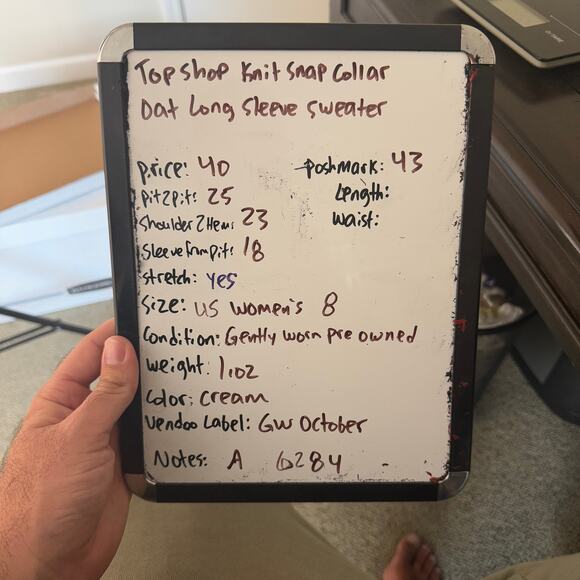 TopShop Knit Snap Collar
Oat Long Sleeve Sweater
Price: 40
Poshmark: 43
Pit2Pit: 25
Length:
Shoulder2Hem: 23
Waist:
Sleevefrompit: 18
Stretch: yes
Size: US Women's 8
Condition: Gently worn pre owned
Weight: 1.02
Color: Cream
Vendoo Label: GW October
Notes: A 6284